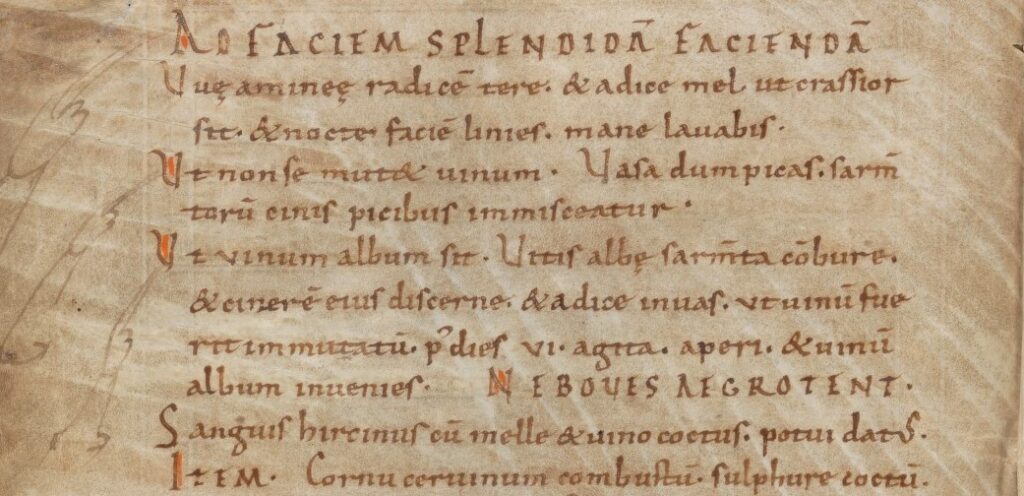 AD FACIEM SPLENDIDĀ FACIENDĀ
Uuę amineę radicē tere. & adice mel ut crassior
sit. & nocte faciē linies. mane lauabis.
Ut non se mut& uinum. Uasa dum picas. sarm̄
torū cinis picibus immisceatur.
Ut vinum album sit. Uitis albę sarm̄ta cōbure.
& cinerē eius discerne. & adice in uas. vt uinū fue
rit immutatū. p̄ dies vi. agita. aperi. & uinū
album inuenies. NE BOVES AEGROTENT.
Sanguis hircinus cū melle & uino coctus. potui dat᷒.
ITEM. Cornu ceruinum combustū. sulphure coctū.